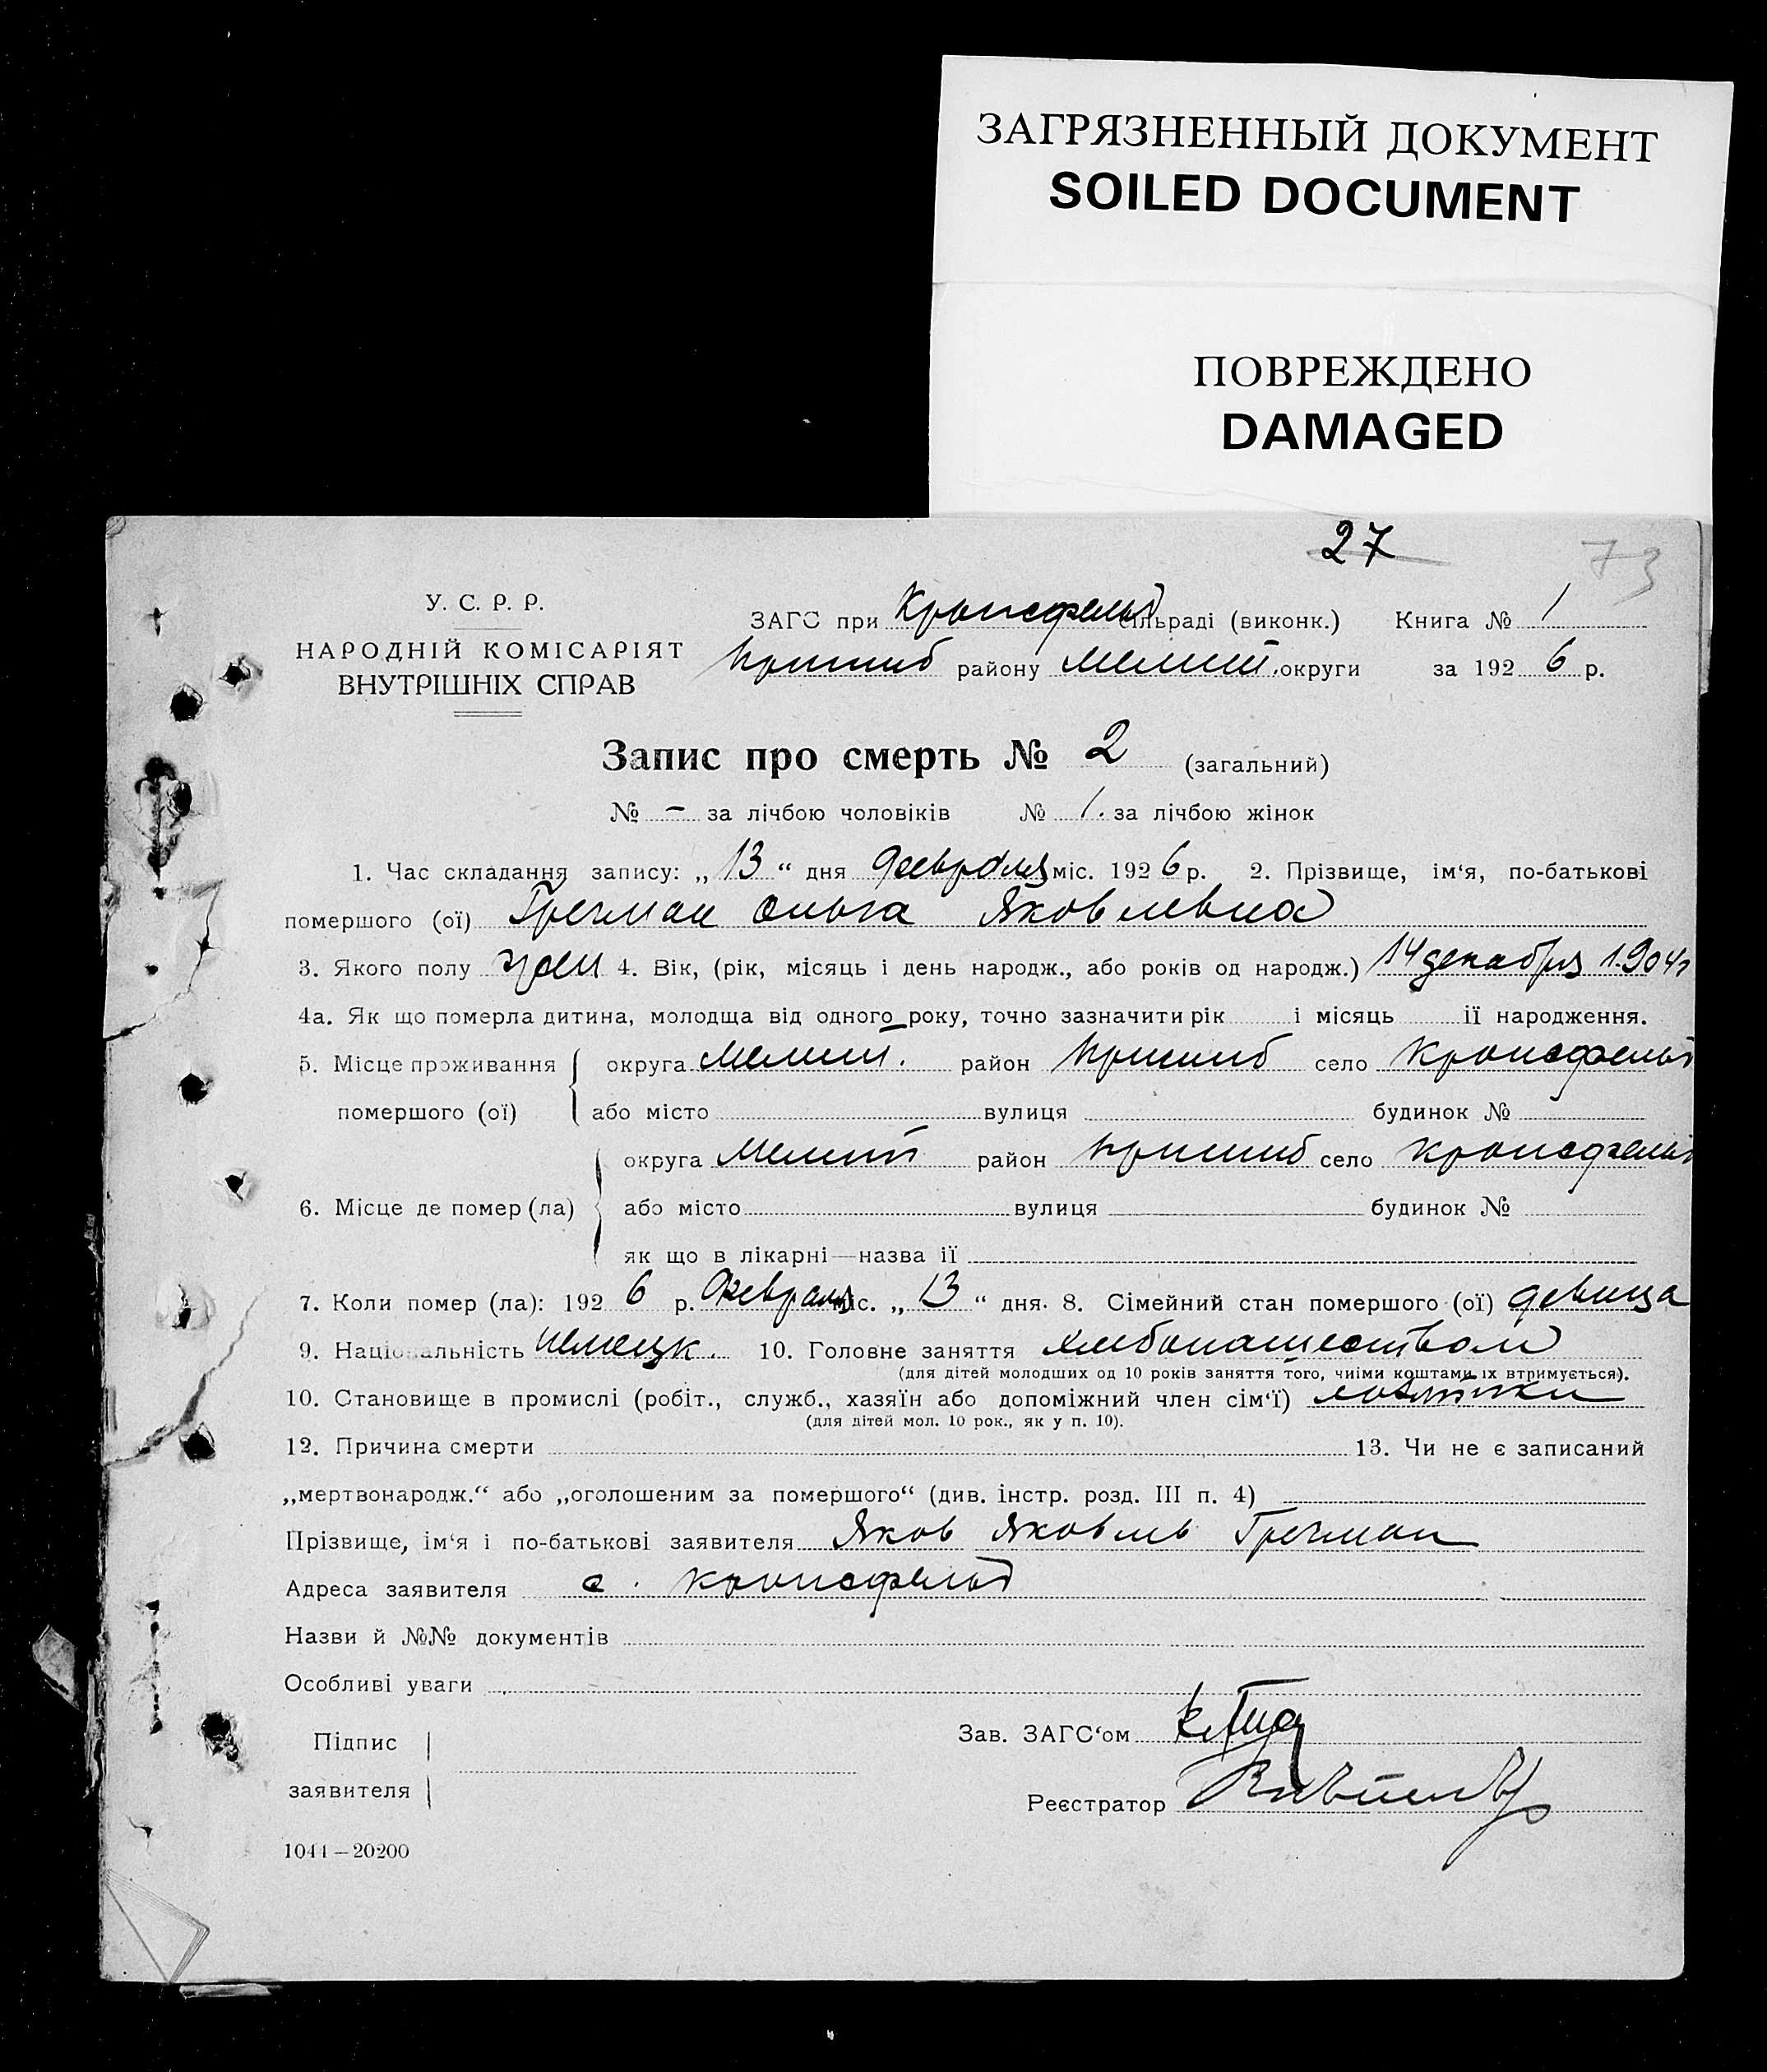 ЗАГРЯЗНЕННЫЙ ДОКУМЕНТ
SOILED DOCUMENT
ПОВРЕЖДЕНО
DAMAGED
27
73
У. С. Р. Р.
НАРОДНІЙ КОМІСАРІЯТ
ВНУТРІШНІХ СПРАВ
ЗАГС при Кронсфельд сільраді (виконк.) Книга № 1
Пришиб району Мелит. округи за 1926 р.
Запис про смерть № 2 (загальний)
№ – за лічбою чоловіків № 1. за лічбою жінок
1. Час складання запису: „13“ дня февраля міс. 1926 р. 2. Прізвище, ім‘я, по-батькові
помершого (ої) Гречман Ольга Яковлевна
3. Якого полу жен 4. Вік, (рік, місяць і день народж., або років од народж.) 14 декабря 1904 г
4а. Як що померла дитина, молодща від одного року, точно зазначити рік і місяць її народження.
5. Місце проживання округа Мелит. район Пришиб село Кронсфельд
помершого (ої) або місто вулиця будинок №
округа Мелит район Пришиб село Кронсфельд
6. Місце де помер (ла) або місто вулиця будинок №
як що в лікарні—назва її
7. Коли помер (ла): 1926 р. Февраля міс. „13“ дня. 8. Сімейний стан помершого (ої) девица
9. Національність Немецк. 10. Головне заняття хлебопашеством
(для дітей молодших од 10 років заняття того, чиїми коштами їх втримується).
10. Становище в промислі (робіт., служб., хазяїн або допоміжний член сім‘ї)
(для дітей мол. 10 рок., як у п. 10).
12. Причина смерти 13. Чи не є записаний
„мертвонародж.“ або „оголошеним за помершого“ (див. інстр. розд. III п. 4)
Прізвище, ім‘я і по-батькові заявителя Яков Яковль Гречман
Адреса заявителя с. Кронсфельд
Назви й №№ документів
Особливі уваги
Підпис
заявителя
Зав. ЗАГС‘ом
Реєстратор
1044—20200